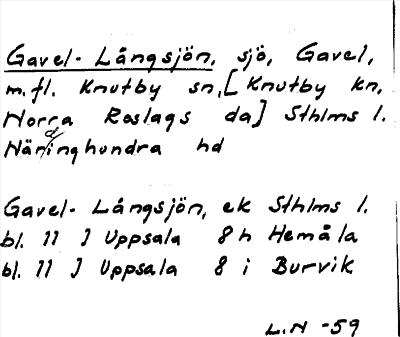 Gavel-Långsjön, sjö, Gavel,
m.fl. Knutby sn, [Knutby kn,
Norra Roslags da] Sthlms l.
Närdinghundra hd
Gavel-Långsjön, ek Sthlms l.
bl. 11 J Uppsala 8 h Hemåla
bl. 11 J Uppsala 8 i Burvik
L.N -59